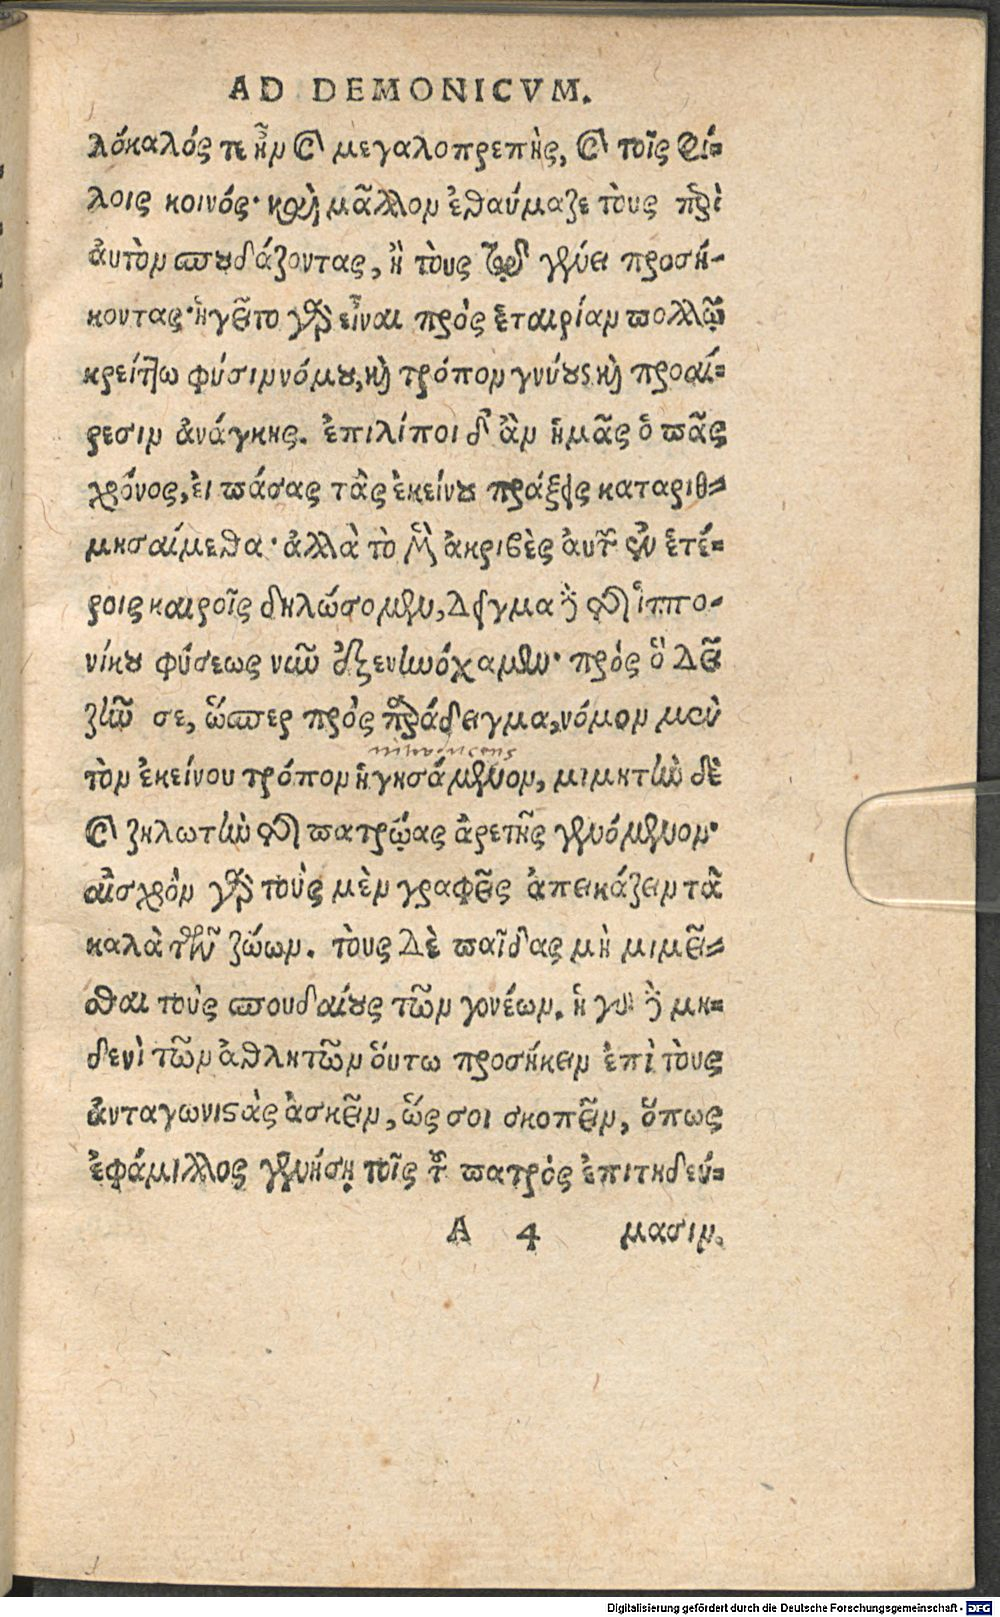 AD DEMONICVM.
λόκαλός τε ἦν καὶ μεγαλοπρεπὴς, καὶ τοῖς φί-
λοις κοινός· καὶ μᾶλλον ἐθαύμαζε τοὺς περὶ
αὑτὸν σπουδάζοντας, ἢ τοὺς τῷ γένει προσή-
κοντας· ἡγεῖτο γὰρ εἶναι πρὸς ἑταιρίαν πολλῷ
κρείττω φύσιν νόμου, καὶ τρόπον γένους καὶ προαί-
ρεσιν ἀνάγκης. ἐπιλίποι δ' ἂν ἡμᾶς ὁ πᾶς
χρόνος, εἰ πάσας τὰς ἐκείνου πράξεις καταριθ-
μησαίμεθα· ἀλλὰ τὸ μὲν ἀκριβὲς αὐτῶν ἐν ἑτέ-
ροις καιροῖς δηλώσομεν, δεῖγμα δὲ τῆς ἱππο-
νίκου φύσεως νῦν ἐξενηνόχαμεν· πρὸς ὃ δεῖ
ζῆν σε, ὥσπερ πρὸς παράδειγμα, νόμον μὲν
τὸν ἐκείνου τρόπον ἡγησάμενον, μιμητὴν δὲ
καὶ ζηλωτὴν τῆς πατρῴας ἀρετῆς γενόμενον·
αἰσχρὸν γὰρ τοὺς μὲν γραφεῖς ἀπεικάζειν τὰ
καλὰ τῶν ζώων. τοὺς δὲ παῖδας μὴ μιμεῖ-
σθαι τοὺς σπουδαίους τῶν γονέων. ἡγοῦ δὲ μη-
δενὶ τῶν ἀθλητῶν οὕτω προσήκειν ἐπὶ τοὺς
ἀνταγωνιστὰς ἀσκεῖν, ὥς σοι σκοπεῖν, ὅπως
ἐφάμιλλος γενήσῃ τοῖς τοῦ πατρὸς ἐπιτηδεύ-
A 4 μασιν.
Digitalisierung gefördert durch die Deutsche Forschungsgemeinschaft - DFG